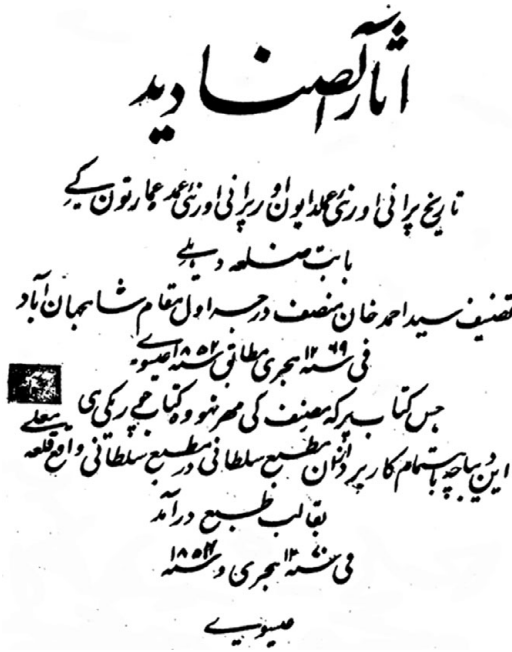 آثار الصنادید
تاریخ پرانی اور نئی عملداریون اور پرانی اور نئی عمدہ عمارتون کے
بابت ضلعہ دہلے
تصنیف سید احمد خان منصف درجہ اول بمقام شاہجہان آباد
فی سنہ ۱۲۶۹ ہجری مطابق سنہ ۱۸۵۲ عیسوے
جس کتاب پر کہ مصنف کی مہر نہو وہ کتاب چوری کی ہی
این دیباچہ باہتمام کارپردازان مطبع سلطانی در مطبع سلطانی واقع قلعہ معلے
بقالب طبع درآمد
فی سنہ ۱۲۷۰ ہجری و سنہ ۱۸۵۴
عیسویے